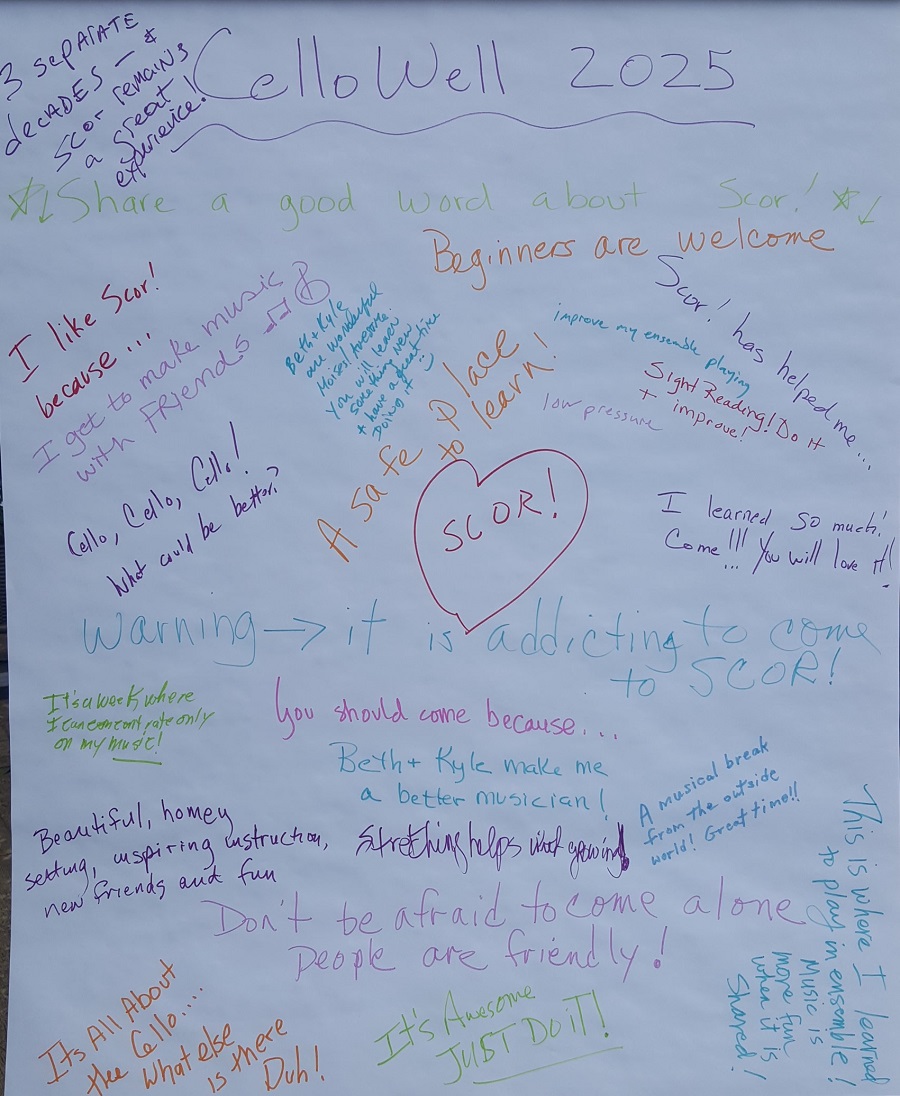 3 separate
decades — &
Scor remains
a great
experience!
CelloWell 2025
Share a good word about Scor!
Beginners are welcome
I like Scor!
because ...
I get to make music
with Friends
Beth + Kyle
are wonderful
Awesome
You will learn
something new
+ have a great time
Doing it
A safe place
to learn!
Scor! has helped me...
improve my ensemble playing
Sight Reading! Do it
+ improve!
low pressure
Cello, Cello, Cello!
What could be better?
SCOR!
I learned so much!
Come!!! You will love it!
Warning → it is addicting to come
to SCOR!
It's a week where
I can concentrate only
on my music!
You should come because...
Beth + Kyle make me
a better musician!
A musical break
from the outside
world! Great time!!
Beautiful, homey
setting, inspiring instruction,
new friends and fun
Stretching helps
Don't be afraid to come alone
People are friendly!
This is where I learned
to play in ensemble!
Music is
more fun
when it is
Shared!
Its All About
the Cello....
What else
is there
Duh!
It's Awesome
JUST DO IT!